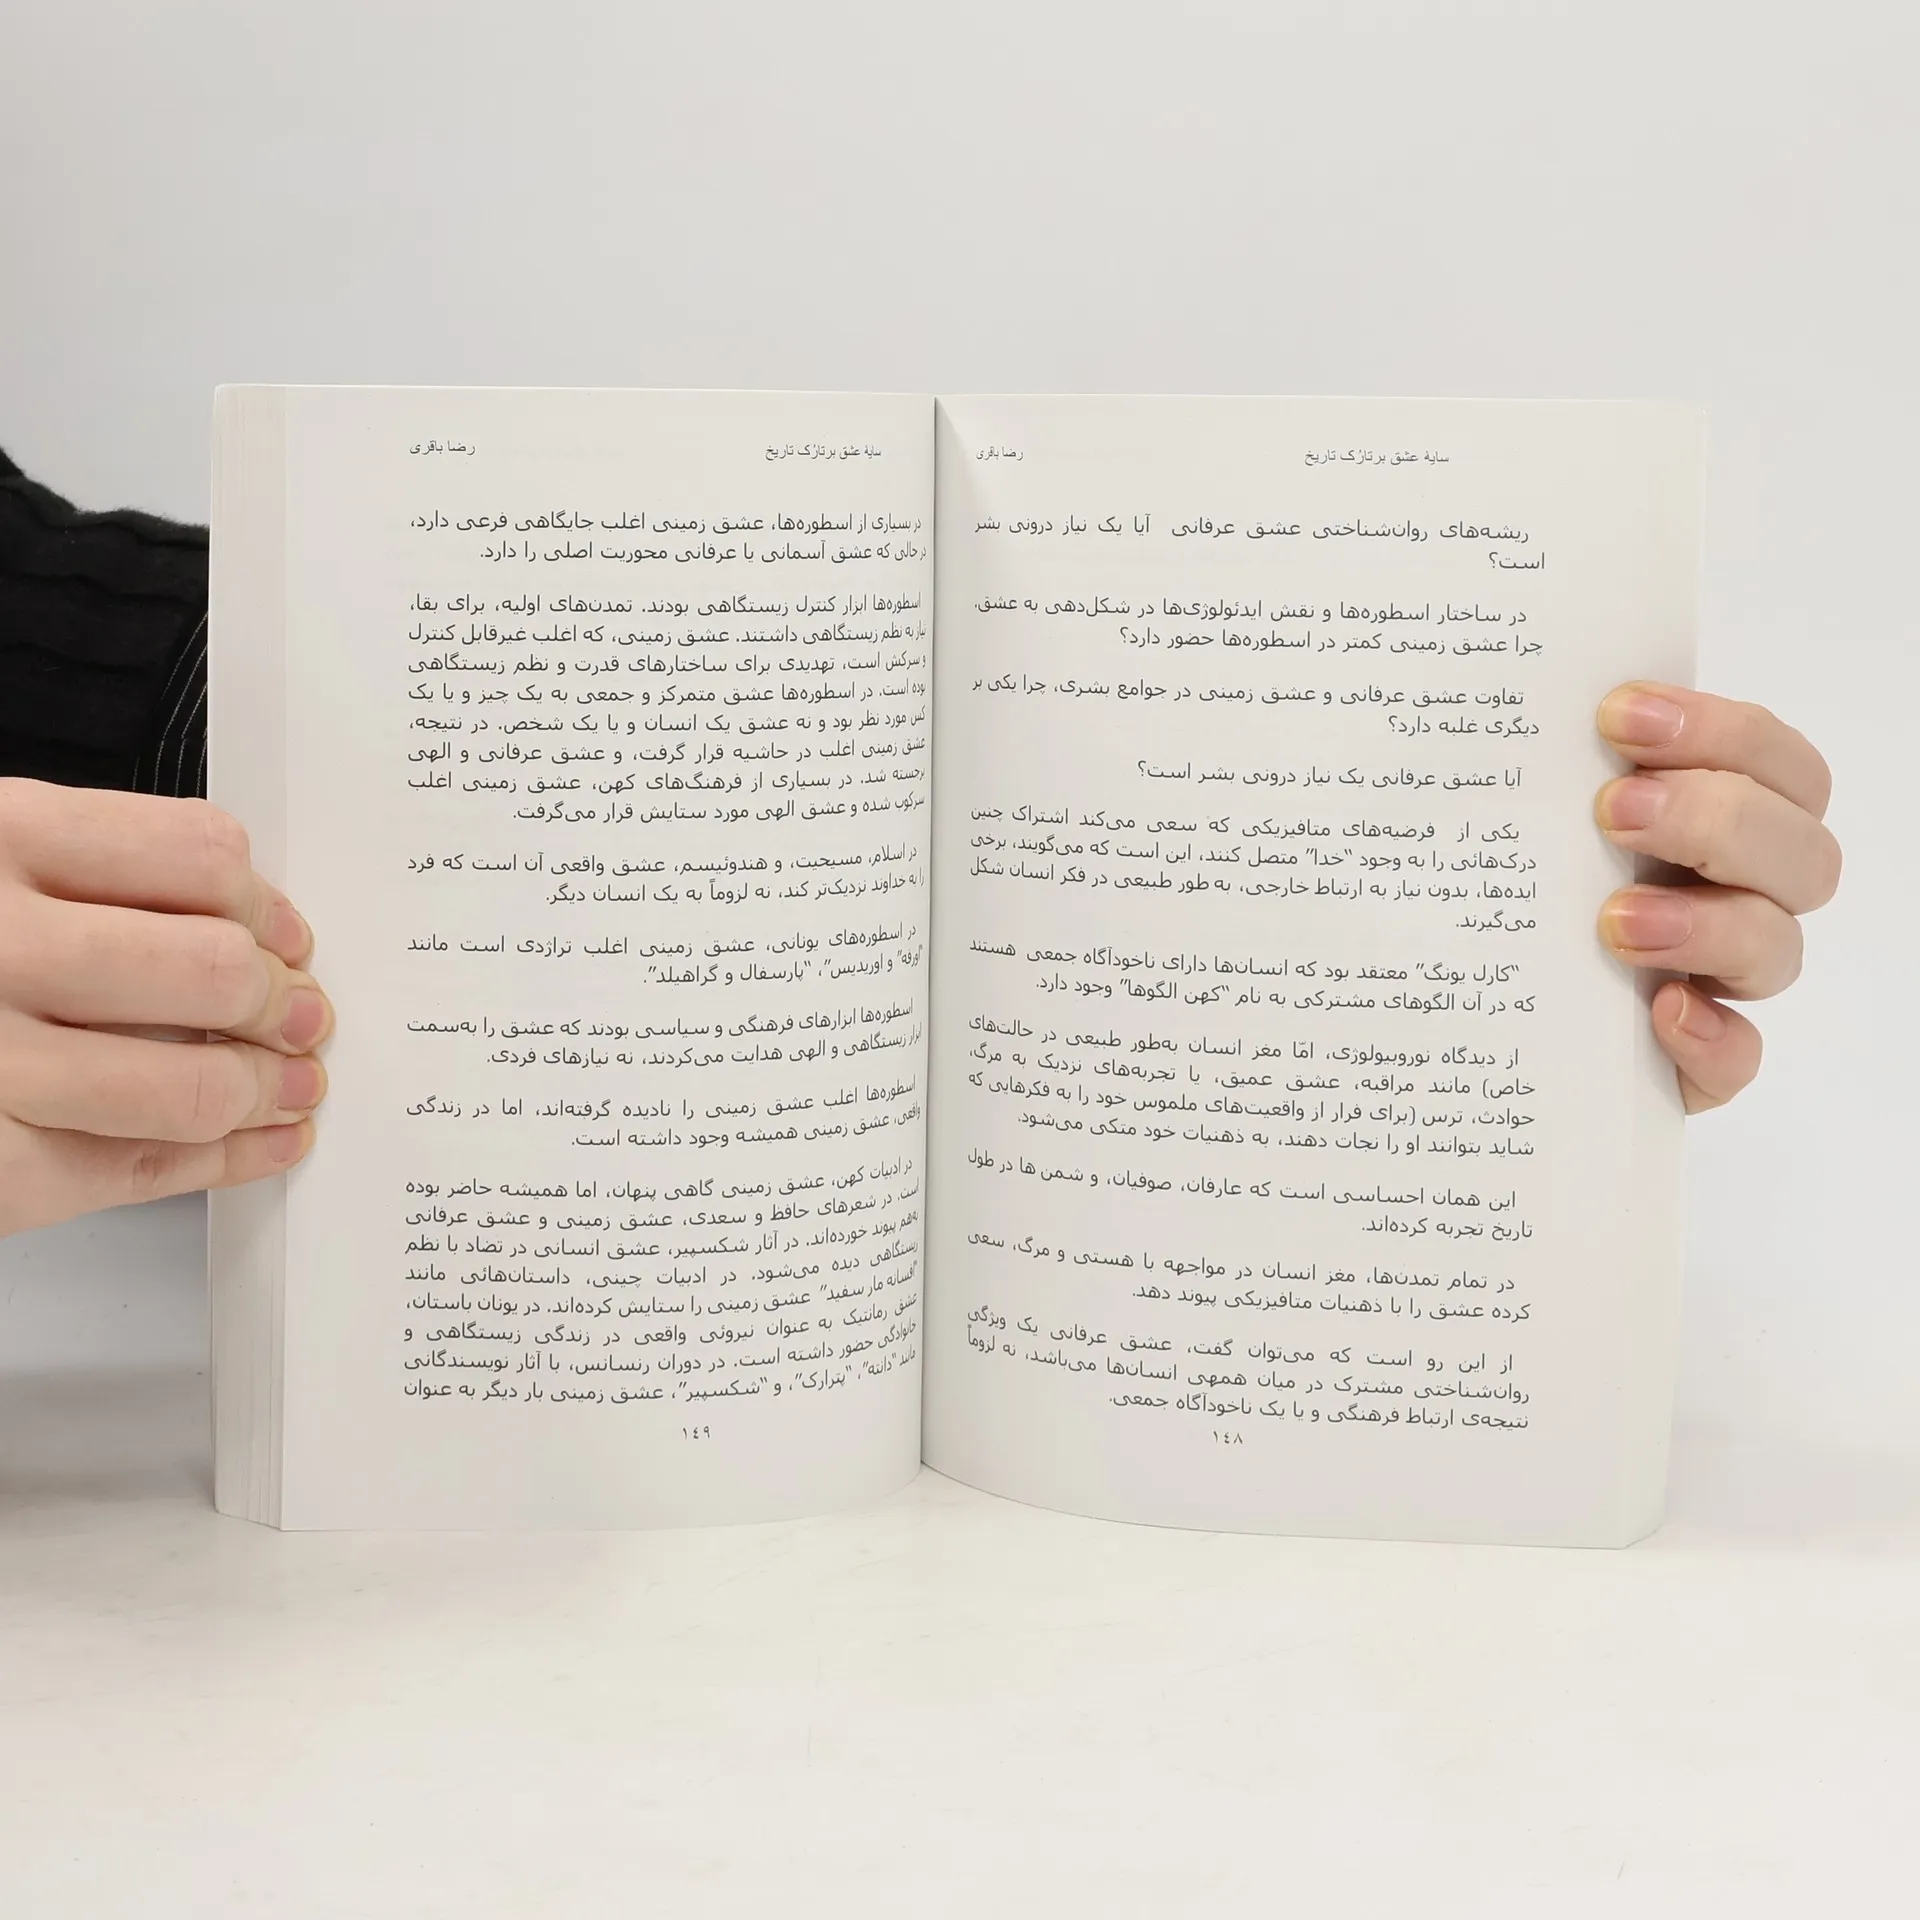 سایهٔ عشق برتارُک تاریخ رضا باقری
ریشه‌های روان‌شناختی عشق عرفانی آیا یک نیاز درونی بشر
است؟
در ساختار اسطوره‌ها و نقش ایدئولوژی‌ها در شکل‌دهی به عشق.
چرا عشق زمینی کمتر در اسطوره‌ها حضور دارد؟
تفاوت عشق عرفانی و عشق زمینی در جوامع بشری، چرا یکی بر
دیگری غلبه دارد؟
آیا عشق عرفانی یک نیاز درونی بشر است؟
یکی از فرضیه‌های متافیزیکی که سعی می‌کند اشتراک چنین
درک‌هائی را به وجود “خدا” متصل کنند، این است که می‌گویند، برخی
ایده‌ها، بدون نیاز به ارتباط خارجی، به طور طبیعی در فکر انسان شکل
می‌گیرند.
“کارل یونگ” معتقد بود که انسان‌ها دارای ناخودآگاه جمعی هستند
که در آن الگوهای مشترکی به نام “کهن الگوها” وجود دارد.
از دیدگاه نوروبیولوژی، امّا مغز انسان به‌طور طبیعی در حالت‌های
خاص) مانند مراقبه، عشق عمیق، یا تجربه‌های نزدیک به مرگ،
حوادث، ترس (برای فرار از واقعیت‌های ملموس خود را به فکرهایی که
شاید بتوانند او را نجات دهند، به ذهنیات خود متکی می‌شود.
این همان احساسی است که عارفان، صوفیان، و شمن ها در طول
تاریخ تجربه کرده‌اند.
در تمام تمدن‌ها، مغز انسان در مواجهه با هستی و مرگ، سعی
کرده عشق را با ذهنیات متافیزیکی پیوند دهد.
از این رو است که می‌توان گفت، عشق عرفانی یک ویژگی
روان‌شناختی مشترک در میان همهی انسان‌ها می‌باشد، نه لزوماً
نتیجه‌ی ارتباط فرهنگی و یا یک ناخودآگاه جمعی.
١٤٨
سایهٔ عشق برتارُک تاریخ رضا باقری
در بسیاری از اسطوره‌ها، عشق زمینی اغلب جایگاهی فرعی دارد،
در حالی که عشق آسمانی یا عرفانی محوریت اصلی را دارد.
اسطوره‌ها ابزار کنترل زیستگاهی بودند. تمدن‌های اولیه، برای بقا،
نیاز به نظم زیستگاهی داشتند. عشق زمینی، که اغلب غیرقابل کنترل
و سرکش است، تهدیدی برای ساختارهای قدرت و نظم زیستگاهی
بوده است. در اسطوره‌ها عشق متمرکز و جمعی به یک چیز و یا یک
کس مورد نظر بود و نه عشق یک انسان و یا یک شخص. در نتیجه،
عشق زمینی اغلب در حاشیه قرار گرفت، و عشق عرفانی و الهی
برجسته شد. در بسیاری از فرهنگ‌های کهن، عشق زمینی اغلب
سرکوب شده و عشق الهی مورد ستایش قرار می‌گرفت.
در اسلام، مسیحیت، و هندوئیسم، عشق واقعی آن است که فرد
را به خداوند نزدیک‌تر کند، نه لزوماً به یک انسان دیگر.
در اسطوره‌های یونانی، عشق زمینی اغلب تراژدی است مانند
“اورفه” و اوریدیس”، “پارسفال و گراهیلد”.
اسطوره‌ها ابزارهای فرهنگی و سیاسی بودند که عشق را به‌سمت
ابزار زیستگاهی و الهی هدایت می‌کردند، نه نیازهای فردی.
اسطوره‌ها اغلب عشق زمینی را نادیده گرفته‌اند، اما در زندگی
واقعی، عشق زمینی همیشه وجود داشته است.
در ادبیات کهن، عشق زمینی گاهی پنهان، اما همیشه حاضر بوده
است. در شعرهای حافظ و سعدی، عشق زمینی و عشق عرفانی
به‌هم پیوند خورده‌اند. در آثار شکسپیر، عشق انسانی در تضاد با نظم
زیستگاهی دیده می‌شود. در ادبیات چینی، داستان‌هائی مانند
“افسانه مار سفید” عشق زمینی را ستایش کرده‌اند. در یونان باستان،
عشق رمانتیک به عنوان نیروئی واقعی در زندگی زیستگاهی و
خانوادگی حضور داشته است. در دوران رنسانس، با آثار نویسندگانی
مانند “دانته”، “پترارک”، و “شکسپیر”، عشق زمینی بار دیگر به عنوان
١٤٩